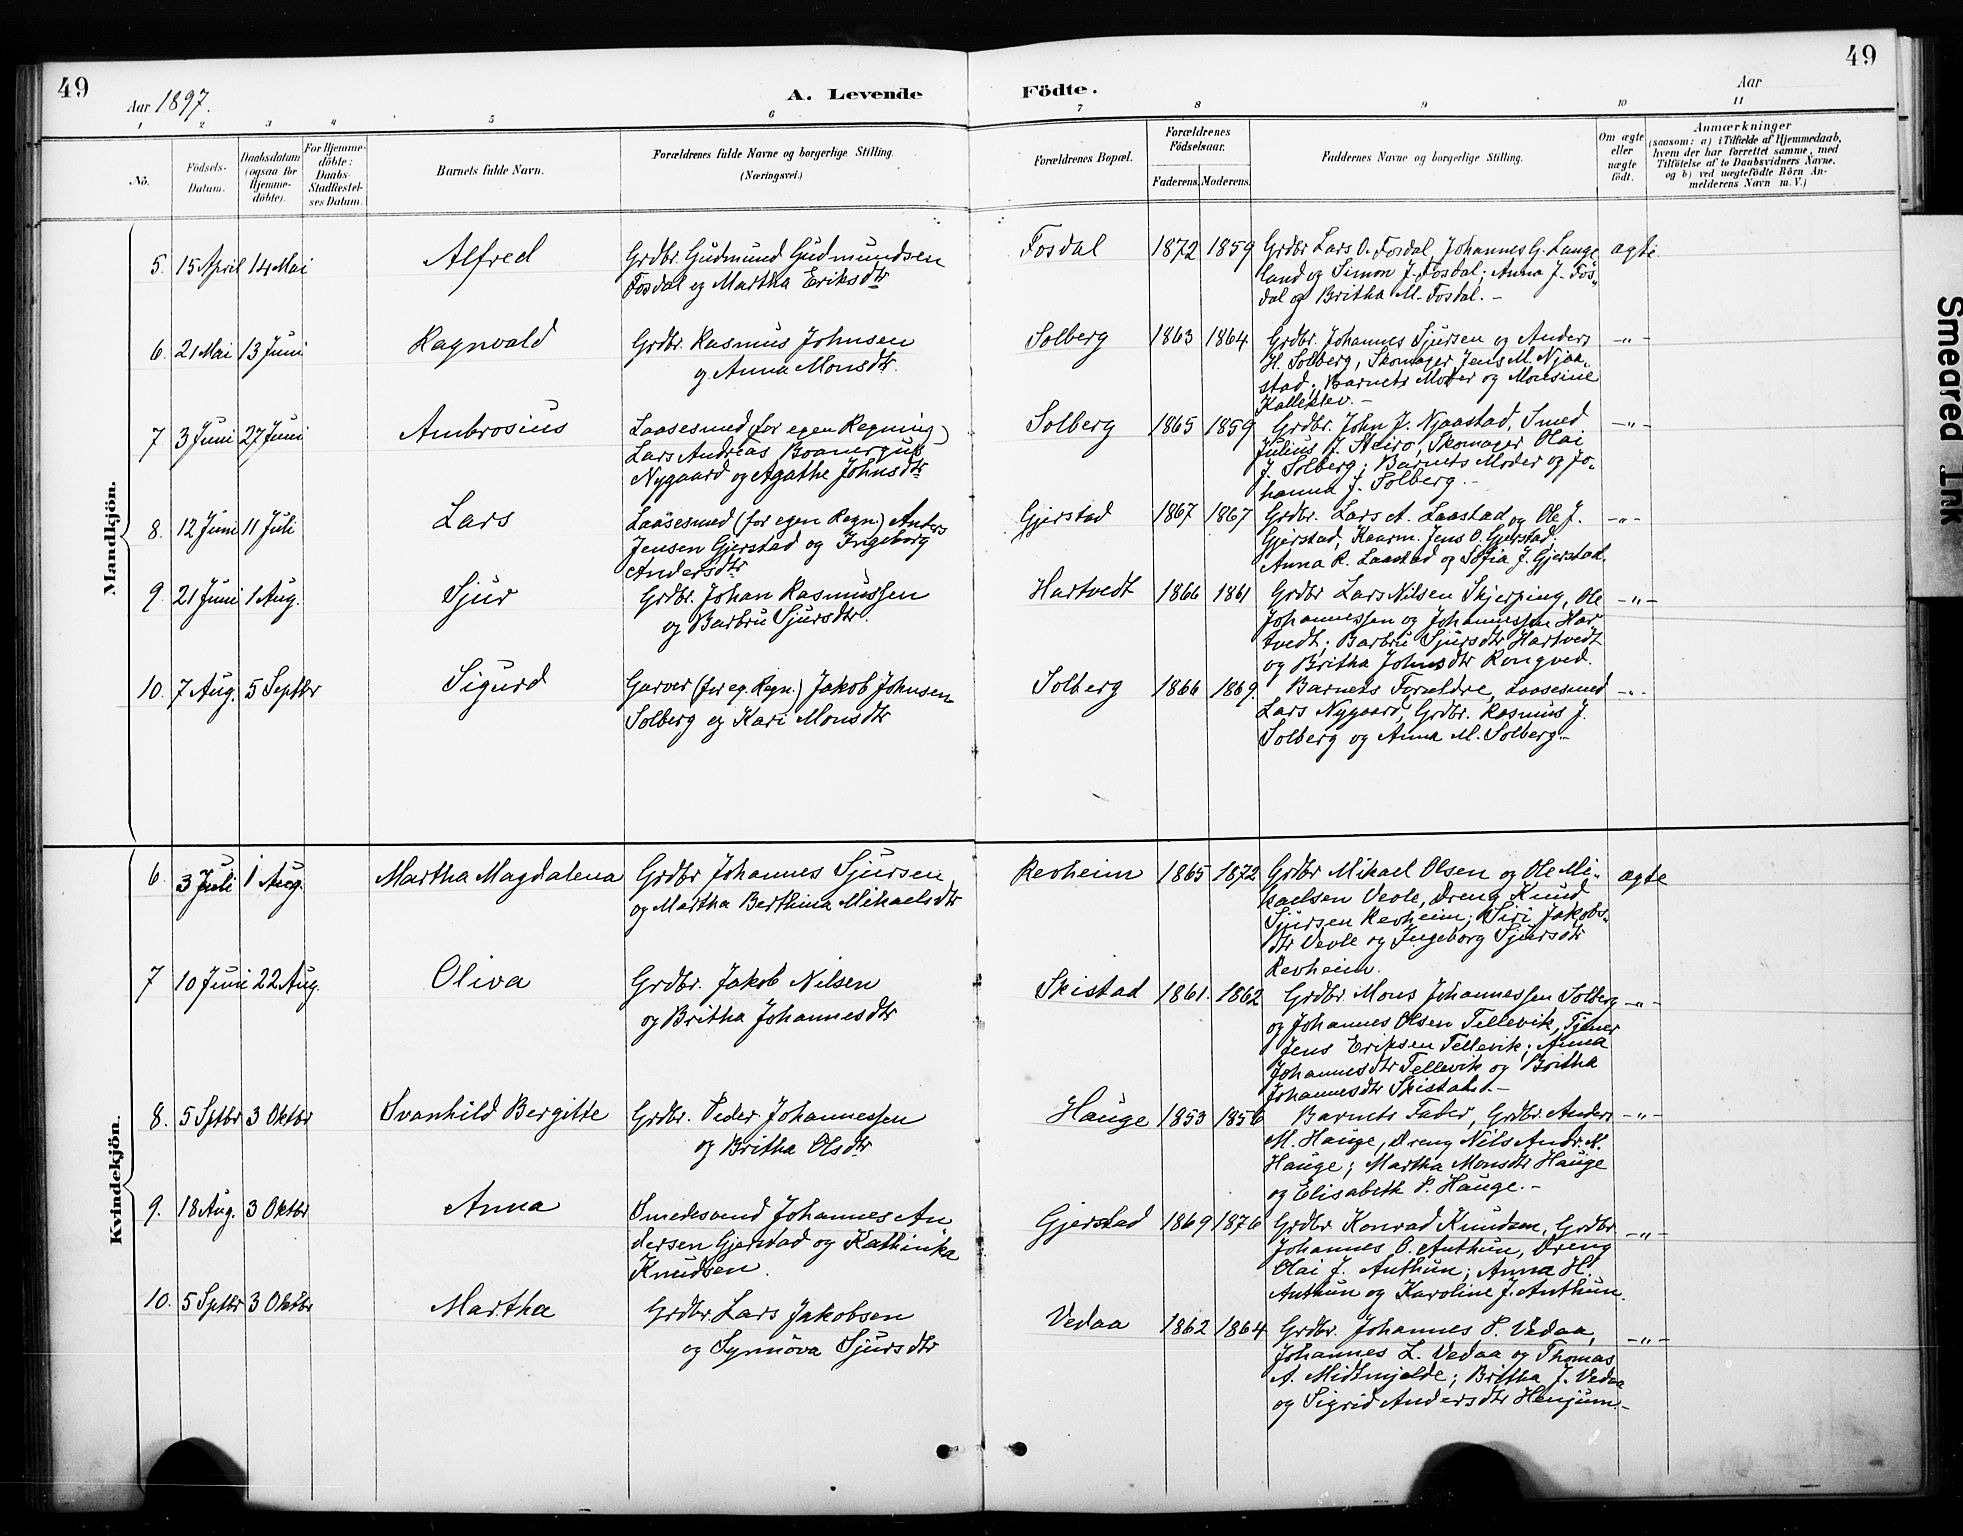 49
49
Aar 1897.
A. Levende
Födte.
Aar
1 2 3 4 5 6 7 8 9 10 11
No.
Födsels-
Datum.
Daabsdatum
(ogsaa for
Hjemme-
döbte).
For Hjemme-
döbte:
Daabs-
Stadfæstel-
ses Datum.
Barnets fulde Navn.
Forældrenes fulde Navne og borgerlige Stilling.
(Næringsvei.)
Forældrenes Bopæl.
Forældrenes
Födselsaar.
Faderens. Moderens.
Faddernes Navne og borgerlige Stilling.
Om ægte
eller
uægte
födt.
Anmærkninger
(saasom: a) i Tilfælde af Hjemmedaab,
hvem der har forrettet samme, med
Tilföielse af to Daabsvidners Navne.
og b) ved uægtefödte Börn An-
melderens Navn m. V.)
Mandkjön.
5. 15 April 14 Mai
Alfred
Grdbr Gudmund Gudmundsen
Fosdal og Martha Eriksdtr
Fosdal 1872 1859
Grdbr Lars O. Fosdal, Johannes G. Lange
land og Simon J. Fosdal; Anna J. Fos-
dal og Britha M. Fosdal. -
ægte
6. 21 Mai 13 Juni
Ragnvald
Grdbr. Rasmus Johnsen
og Anna Monsdtr.
Solberg 1863 1864
Grdbr. Johannes Sjursen og Anders
H. Solberg, Skomager Jens M. Njaa-
stad; Barnets Moder og Monsine
Kalleklev. -
-"-
7 3 Juni 27 Juni
Ambrosius
Laasesmed (for egen Regning)
Lars Andreas Boanergus
Nygaard og Agathe Johnsdtr
Solberg 1865 1859
Grdbr. John J. Njaastad, Smed
Julius J. Steiro, Skomager Olai
J. Solberg; Barnets Moder og Jo-
hanna J. Solberg. -
-"-
8. 12 Juni 11 Juli
Lars
Laasesmed (for egen Regn.) Anders
Jensen Gjerstad og Ingeborg
Andersdtr
Gjerstad 1867 1867
Grdbr. Lars A. Laastad og Ole J.
Gjerstad, Kaarm. Jens O. Gjerstad.
Anna R. Laastad og Sofia J. Gjerstad.
-"-
9. 21 Juni 1 Aug.
Sjur
Grdbr. Johan Rasmussen
og Barbru Sjursdtr.
Hartvedt 1866 1861
Grdbr Lars Nilsen Skjerping, Ole
Johannessen og Johannessen Har
tvedt; Barbru Sjursdtr Hartvedt
og Britha Johnsdtr Rongved.
-"-
10. 7 Aug. 5 Septbr
Sigurd
Garver (for eg. Regn.) Jakob Johnsen
Solberg og Kari Monsdtr
Solberg 1866 1869.
Barnets Forældre, Laasesmed
Lars Nygaard, Grdbr. Rasmus J.
Solberg og Anna M. Solberg. -
-"-
Kvindekjön.
6. 3 Juli 1 Aug.
Martha Magdalena
Grdbr Johannes Sjursen
og Martha Berthina Mikaelsdtr
Revheim 1865 1872
Grdbr Mikael Olsen og Ole Mi-
kaelsen Vevle, Dreng Knud
Sjursen Revheim; Siri Jakobs-
dtr Vevle og Ingeborg Sjursdtr
Revheim.
ægte
7 10 Juni 22 Aug.
Oliva
Grdbr. Jakob Nilsen
og Britha Johannesdtr
Skistad 1861. 1862
Grdbr. Mons Johannessen Solberg
og Johannes Olsen Tellevik, Tjener
Jens Eriksen Tellevik; Anna
Johannesdtr Tellevik og Britha
Johannesdtr Skistad. -
-"-
8. 5 Sptbr 3 Oktbr
Svanhild Bergitte
Grdbr. Peder Johannessen
og Britha Olsdtr
Hauge 1853 1856
Barnets Fader, Grdbr. Anders
M. Hauge, Dreng Nils Andr. N.
Hauge; Martha Monsdtr Hauge
og Elisabeth P. Hauge. -
-"-
9. 18 Aug. 3 Oktbr
Anna
Smedesvend Johannes An
dersen Gjerstad og Kathinka
Knudsen.
Gjerstad 1869 1876
Grdbr. Konrad Knudsen, Grdbr.
Johannes O. Anthun, Dreng
Olai J. Anthun; Anna H.
Anthun og Karoline J. Anthun.
-"-
10. 5 Sptbr 3 Oktbr
Martha
Grdbr. Lars Jakobsen
og Synnöva Sjursdtr
Vedaa 1862 1864
Grdbr. Johannes P. Vedaa,
Johannes L. Vedaa og Thomas
A. Midtmjelde; Britha J. Vedaa
og Sigrid Andersdtr Henjum. -
-"-
Smeared Ink